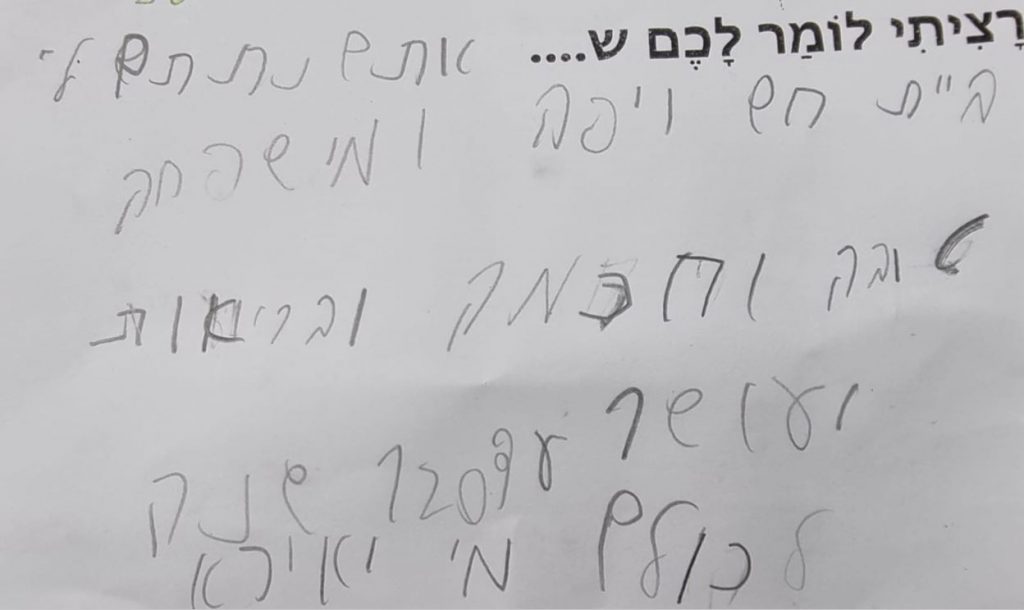 רָצִיתִי לוֹמַר לָכֶם ש.... אתם נתתם לי
ביית חם ויפה ומישפחה
טובה וחכמה ובריאות
ועושר
שנה
לכולם מי